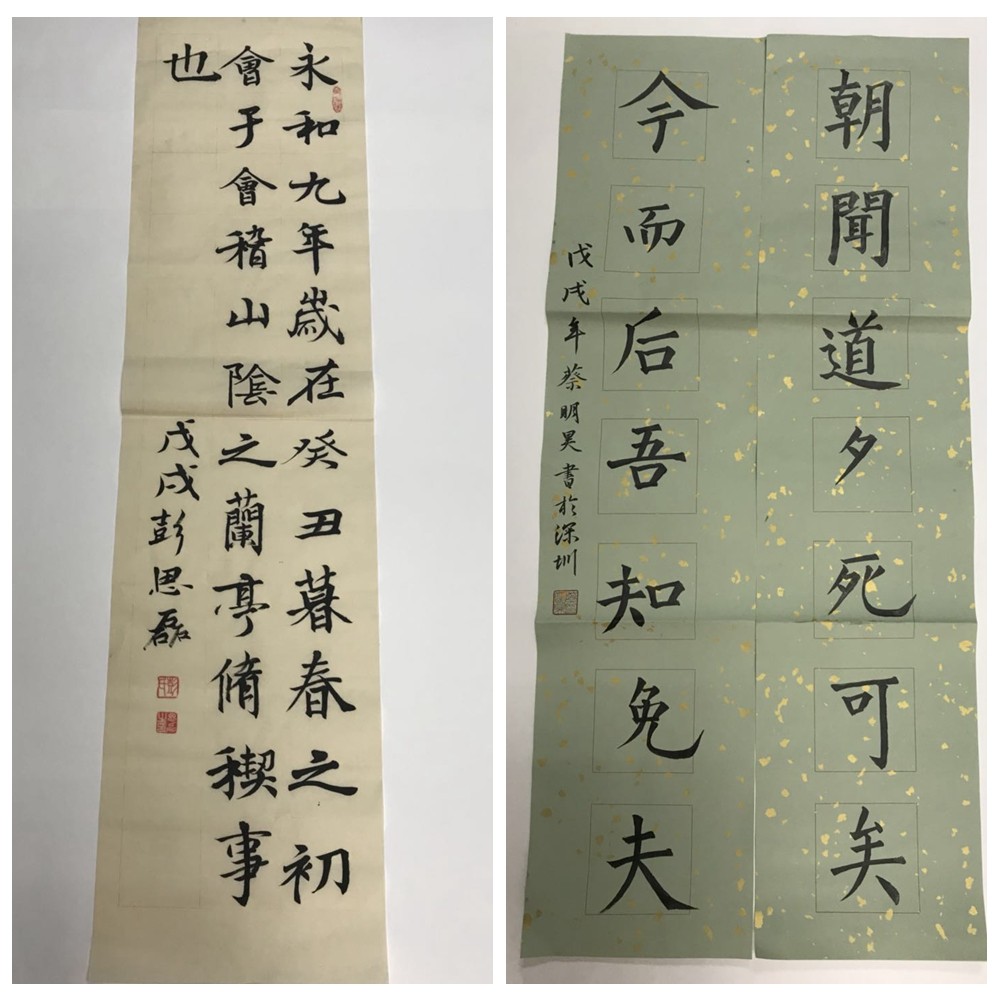 永和九年歲在癸丑暮春之初
會于會稽山陰之蘭亭脩稧事
也
戊戌彭思磊
朝聞道夕死可矣
今而后吾知免夫
戊戌年蔡明昊書於深圳